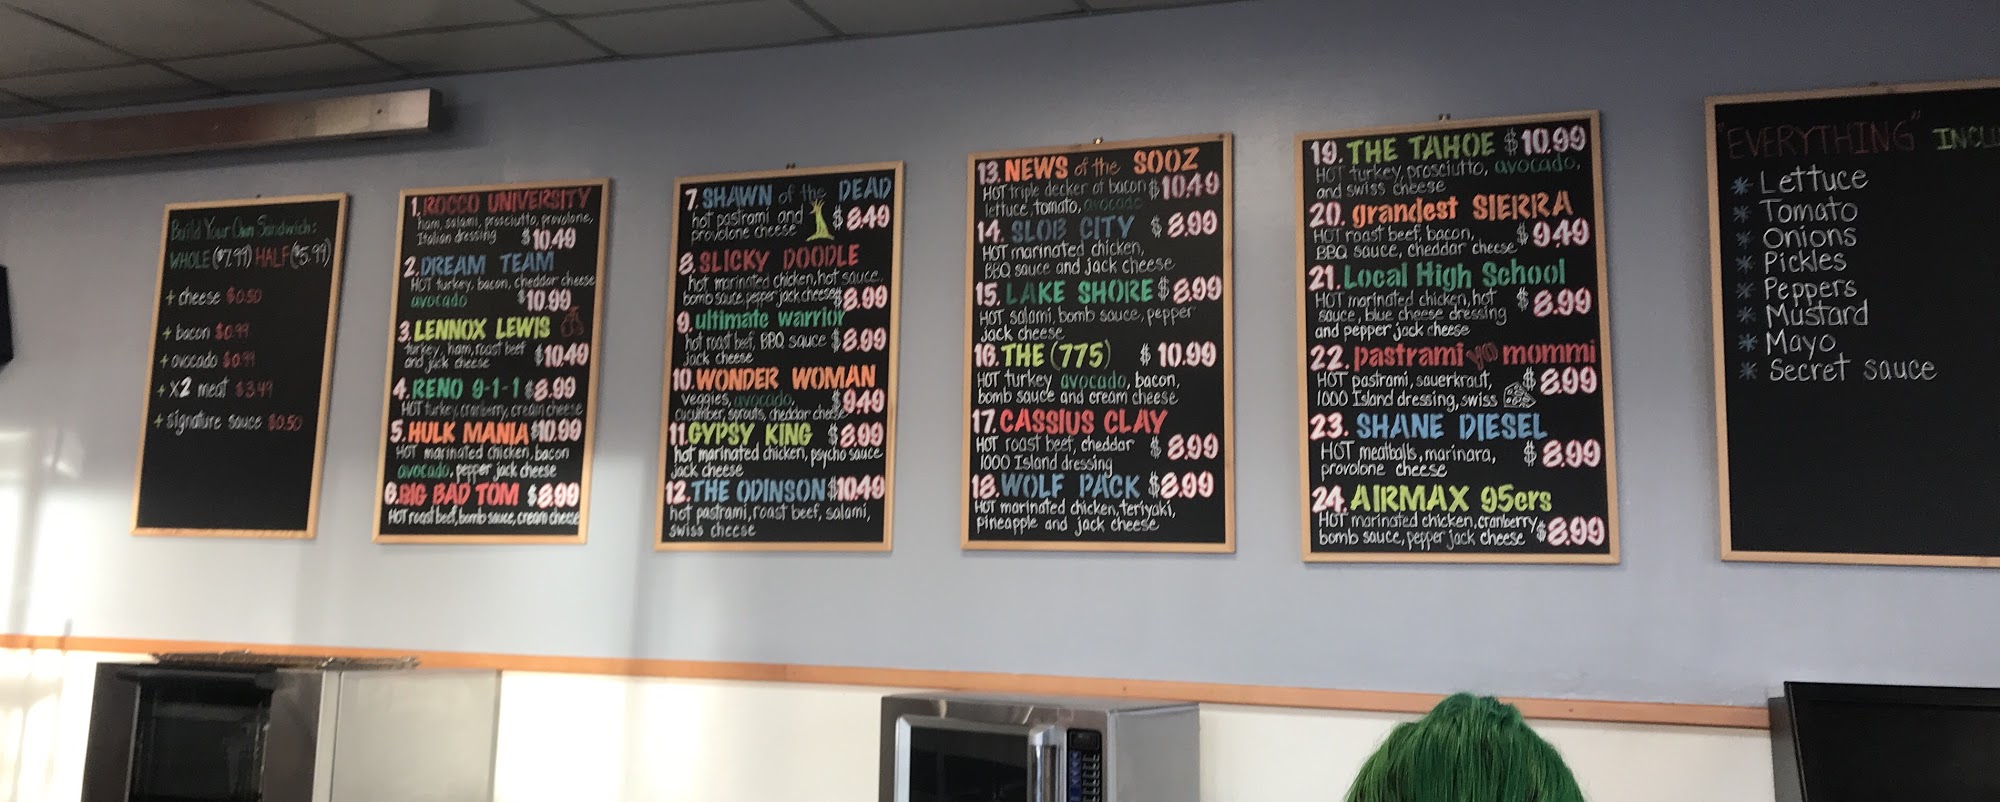 Build Your Own Sandwich:
WHOLE ($7.99) HALF ($5.99)
+ cheese $0.50
+ bacon $0.99
+ avocado $0.99
+ x2 meat $3.49
+ signature sauce $0.50
1. ROCCO UNIVERSITY
ham, salami, prosciutto, provolone,
Italian dressing $10.49
2. DREAM TEAM
HOT turkey, bacon, cheddar cheese
avocado $10.99
3. LENNOX LEWIS
turkey, ham, roast beef
and jack cheese $10.49
4. RENO 9-1-1 $8.99
HOT turkey, cranberry, cream cheese
5. HULK MANIA $10.99
HOT marinated chicken, bacon
avocado, pepper jack cheese
6. BIG BAD TOM $8.99
HOT roast beef, bomb sauce, cream cheese
7. SHAWN of the DEAD
hot pastrami and
provolone cheese $8.49
8. SLICKY DOODLE
hot marinated chicken, hot sauce,
bomb sauce, pepper jack cheese $8.99
9. ultimate warrior
hot roast beef, BBQ sauce $8.99
jack cheese
10. WONDER WOMAN
veggies, avocado, $9.49
cucumber, sprouts, cheddar cheese
11. GYPSY KING $8.99
hot marinated chicken, psycho sauce
jack cheese
12. THE ODINSON $10.49
hot pastrami, roast beef, salami,
swiss cheese
13. NEWS of the SOOZ
HOT triple decker of bacon $10.49
lettuce, tomato, avocado
14. SLOB CITY $8.99
HOT marinated chicken,
BBQ sauce and jack cheese
15. LAKE SHORE $8.99
HOT salami, bomb sauce, pepper
jack cheese
16. THE (775) $10.99
HOT turkey avocado, bacon,
bomb sauce and cream cheese
17. CASSIUS CLAY
HOT roast beef, cheddar $8.99
1000 Island dressing
18. WOLF PACK $8.99
HOT marinated chicken, teriyaki,
pineapple and jack cheese
19. THE TAHOE $10.99
HOT turkey, prosciutto, avocado,
and swiss cheese
20. grandest SIERRA
HOT roast beef, bacon, $9.49
BBQ sauce, cheddar cheese
21. Local High School
HOT marinated chicken, hot $8.99
sauce, blue cheese dressing
and pepper jack cheese
22. pastrami yo mommi
HOT pastrami, sauerkraut, $8.99
1000 Island dressing, swiss
23. SHANE DIESEL
HOT meatballs, marinara, $8.99
provolone cheese
24. AIRMAX 95ers
HOT marinated chicken, cranberry $8.99
bomb sauce, pepper jack cheese
"EVERYTHING" INCLU
* Lettuce
* Tomato
* Onions
* Pickles
* Peppers
* Mustard
* Mayo
* Secret sauce